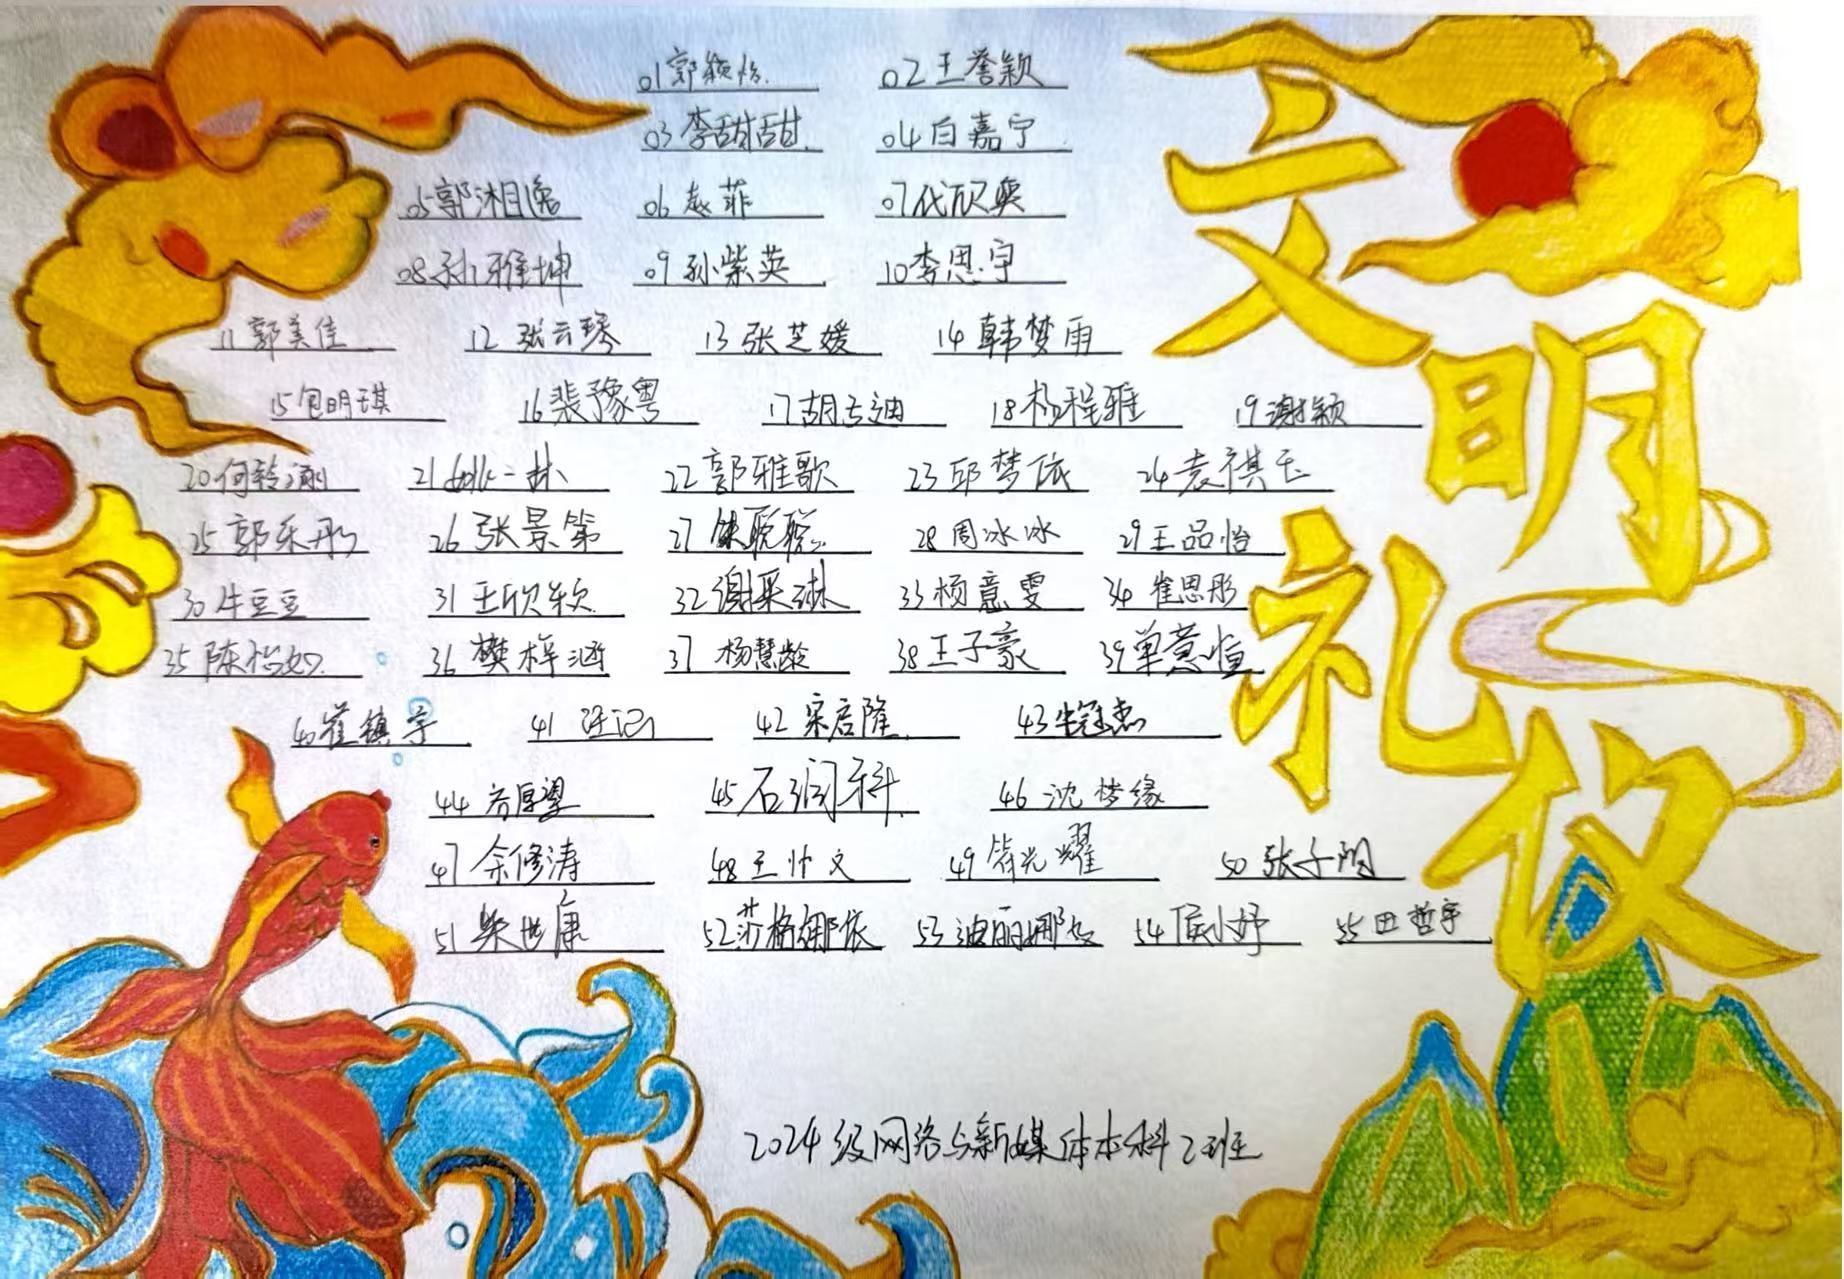 文明礼仪
01郭颖怡 02王誉颖
03李甜甜 04白嘉宁
05郭湘逸 06赵菲 07代欣奥
08孙雅坤 09孙紫英 10李思宇
11郭美佳 12张云琴 13张芝媛 14韩梦雨
15包明琪 16裴豫粤 17胡云迪 18杨程雅 19谢颖
20何 21 22郭雅歌 23邱梦依 24袁祺
25郭乐彤 26张景第 27 28周冰冰 29王品怡
30牛豆豆 31王欣软 32谢果琳 33杨意雯 34崔思彤
35陈怡如 36樊梓涵 37杨慧龄 38王子豪 39单薏恒
40崔镇宇 41 42宋启隆 43冠杰
44厚望 45石润科 46沈梦缘
47余修涛 48王帅文 49光耀 50张子阳
51柴世康 52莎格娜依 53迪丽娜 54侯小妤 55田哲宇
2024级网络与新媒体本科2班